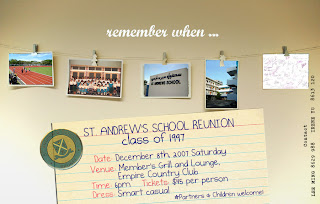 remember when ...
ST. ANDREW'S SCHOOL REUNION
class of 1997
Date: December 8th, 2007 Saturday
Venue: Member's Grill and Lounge,
Empire Country Club
Time: 6pm Tickets: $45 per person
Dress: Smart casual
*Partners & Children welcome!
Contact